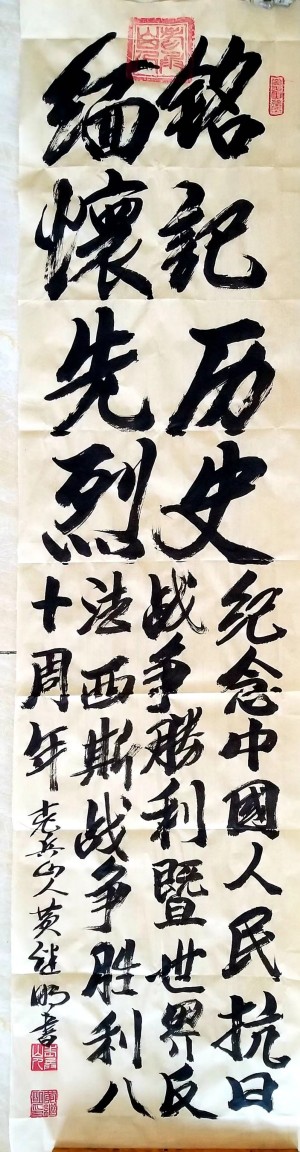 铭记历史
缅懷先烈
纪念中國人民抗日
战争勝利暨世界反
法西斯战争胜利八
十周年
老兵山人黄继明書